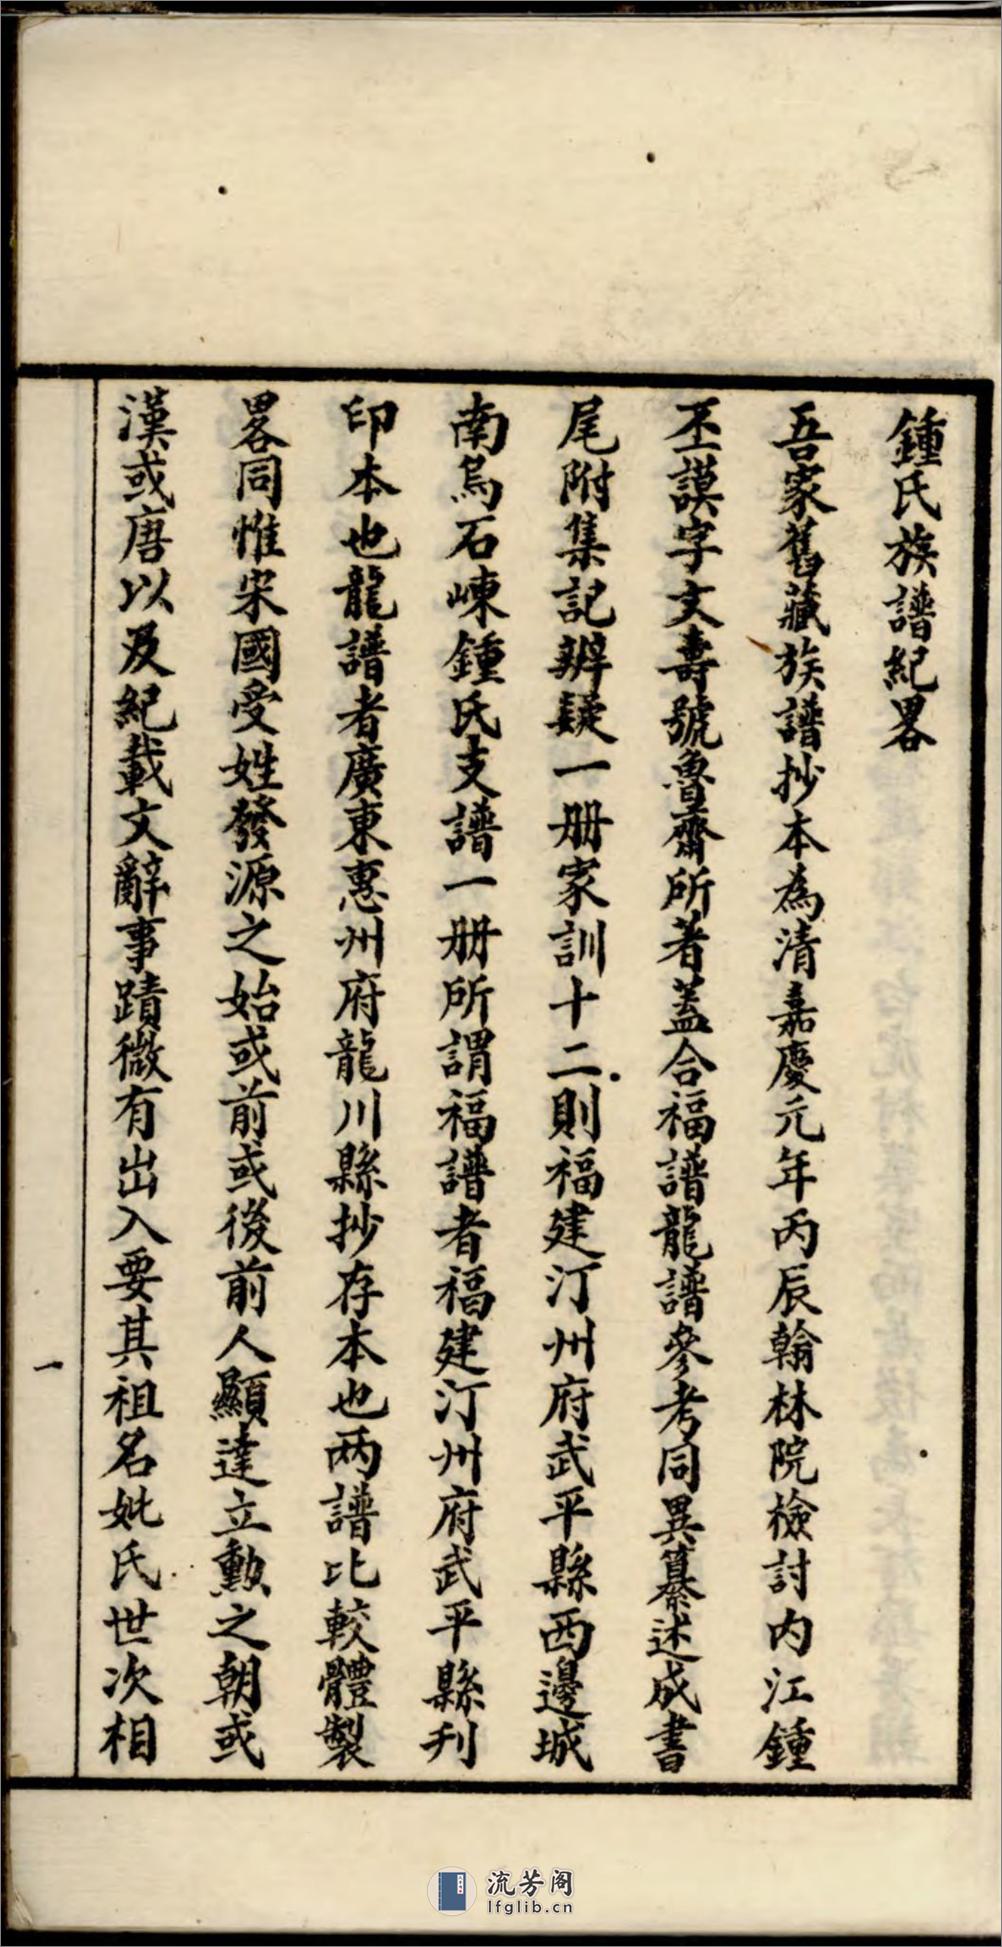 鍾氏族譜紀畧
吾家舊藏族譜抄本為清嘉慶元年丙辰翰林院檢討內江鍾
丕謨字文壽號魯齋所著蓋合福譜龍譜參考同異纂述成書
尾附集記辨疑一册家訓十二則福建汀州府武平縣西邊城
南烏石崠鍾氏支譜一册所謂福譜者福建汀州府武平縣刋
印本也龍譜者廣東惠州府龍川縣抄存本也两譜比較體製
畧同惟宋國受姓發源之始或前或後前人顯達立勳之朝或
漢或唐以及紀載文辭事蹟微有出入要其祖名妣氏世次相
一
流芳阁
lfglib.cn